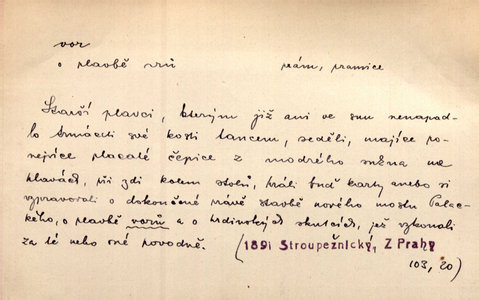 vor
o plavbě vorů    prám, pramice
Starší plavci, kterým již ani ve snu nenapad-
lo trmáceti své kosti tancem, seděli, majíce po-
nejvíce placaté čepice z modrého sukna na
hlavách, při zdi kolem stolů, hráli buď karty anebo si
vypravovali o dokončené právě stavbě nového mostu Palac-
kého, o plavbě vorů a o hrdinských skutcích, jež vykonali
za té nebo oné povodně. (1891 Stroupežnický, Z Prahy
103, 20)